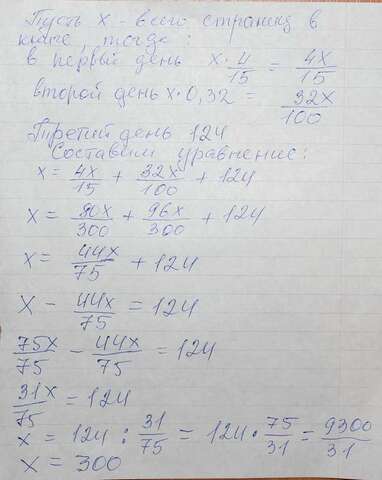 Пусть x - всего страниц в
книге, тогда:
в первый день x · 4/15 = 4x/15
второй день x · 0,32 = 32x/100
Третий день 124
Составим уравнение:
x = 4x/15 + 32x/100 + 124
x = 80x/300 + 96x/300 + 124
x = 44x/75 + 124
x - 44x/75 = 124
75x/75 - 44x/75 = 124
31x/75 = 124
x = 124 : 31/75 = 124 · 75/31 = 9300/31
x = 300